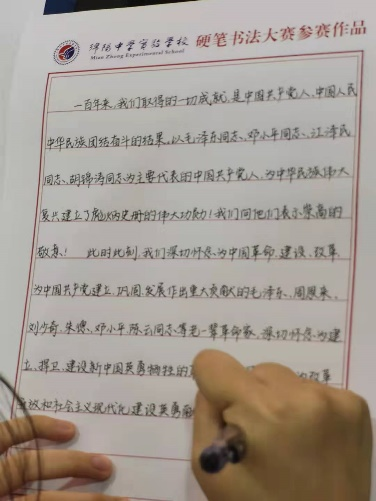 绵阳中学实验学校 硬笔书法大赛参赛作品
Mian Zhong Experimental School
一百年来,我们取得的一切成就,是中国共产党人、中国人民
中华民族团结奋斗的结果。以毛泽东同志、邓小平同志、江泽民
同志、胡锦涛同志为主要代表的中国共产党人,为中华民族伟大
复兴建立了彪炳史册的伟大功勋!我们向他们表示崇高的
敬意! 此时此刻,我们深切怀念为中国革命、建设、改革
为中国共产党建立、巩固、发展作出重大贡献的毛泽东、周恩来、
刘少奇、朱德、邓小平、陈云同志等老一辈革命家,深切怀念为建
立、捍卫、建设新中国英勇牺牲的 改革
放和社会主义现代化建设英勇